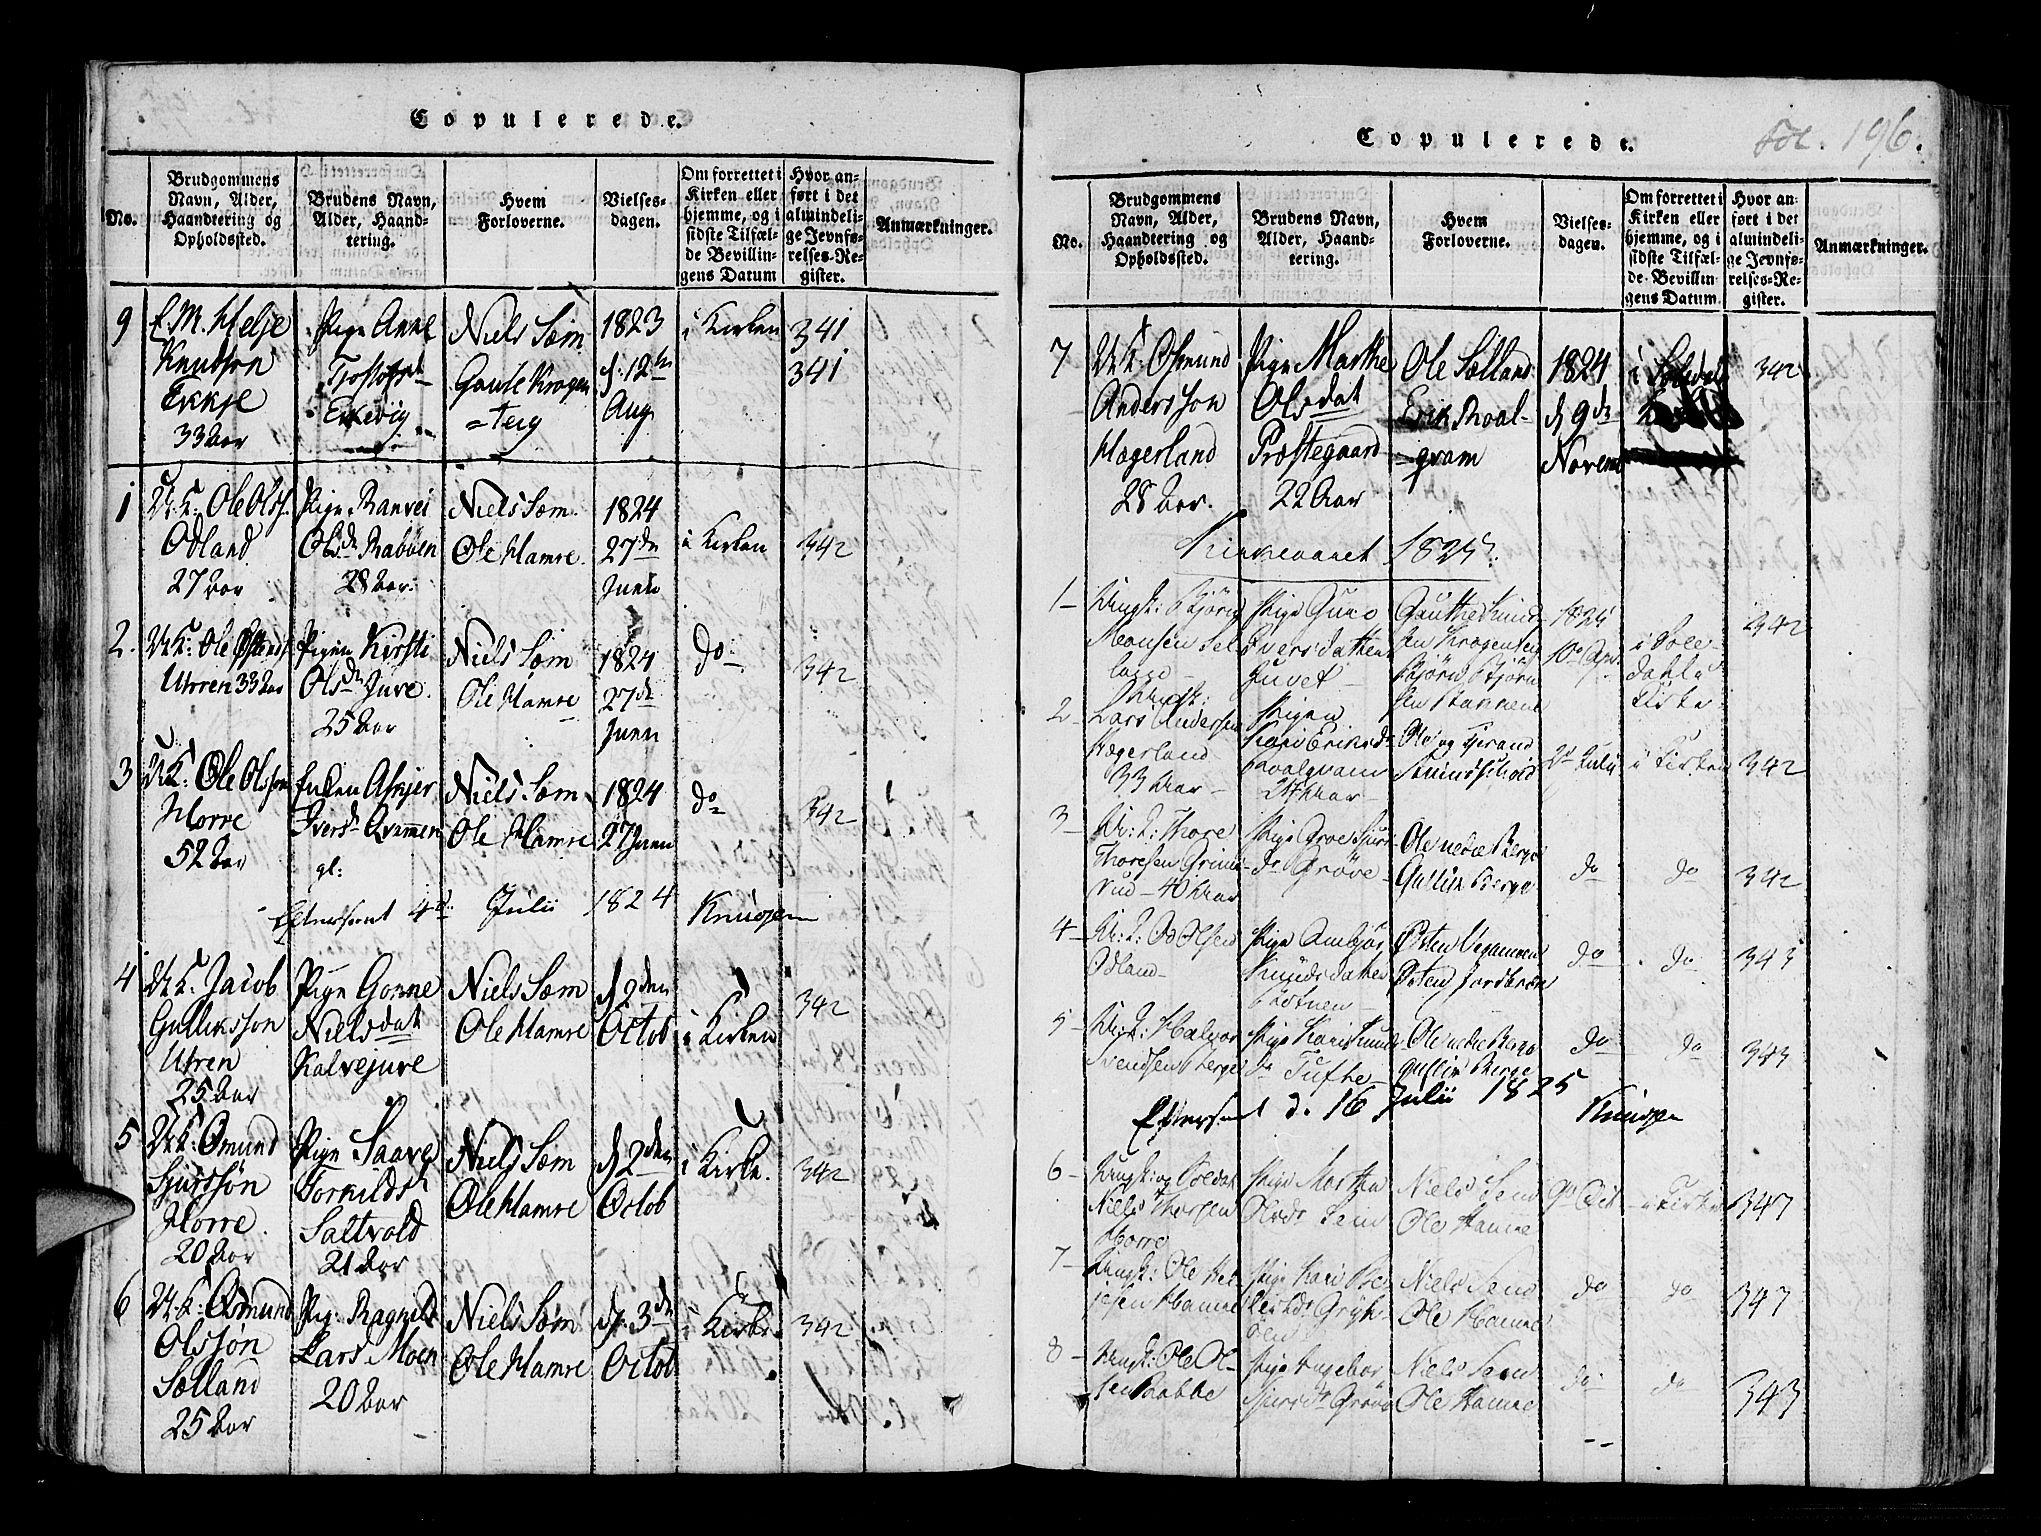 Copulerede.
No.
Brudgommens
Navn, Alder,
Haandtering og
Opholdssted.
Brudens Navn,
Alder, Haand-
tering.
Hvem
Forloverne.
Vielses-
dagen.
Om forrettet i
Kirken eller
hjemme, og i
sidste Tilfæl-
de Bevillin-
gens Datum
Hvor an-
ført i det
almindeli-
ge Jevnfø-
relses-Re-
gister.
Anmærkninger.
9
E. M. Helje
Knudson
Ekkje
33 Aar
Pige Anne
Erkevig
Niels Sæm
Gaute Krogen
=teig
1823
d: 12te
Aug
i Kirken
341
341
1
U: K: Ole Olss.
Odland
27 Aar
Pige Ranvei
Olsdr Rabben
28 Aar
Niels Sæm
Ole Hamre
1824
27de
Junii
i Kirken
342
2.
U: K: Ole
Urren 33 Aar
Pigen Kirsti
Olsdr Juve
25 Aar
Niels Sæm
Ole Hamre
1824
27de
Junii
do
342
3
U: K: Ole Olsson
Horre
52 Aar
Enken Asbjør
Iversdr Qvammen
gl:
Niels Sæm
Ole Hamre
1824
27 Junii
do
342
Efterseet 4d: Julii 1824 Knudsen
4
U: K: Jacob
Gulliksson
Urren
25 Aar
Pige Gonne
Nielsdat
Kalvejuve
Niels Sæm
Ole Hamre
d 2den
Octob
i Kirken
342
5
U: K: Osmund
Sjurssøn
Horre
20 Aar
Pige Saave
Torkildsd
Saltvold
21 Aar
Niels Sæm
Ole Hamre
d 2den
Octob
i Kirke.
342
6
U: K: Osmund
Olsson
Sælland
25 Aar
Pig: Ragnild
Lars Moen
20 Aar
Niels Sæm
Ole Hamre
d. 3de
Octob
i Kirke
342
Copulerede.
Fol. 196.
No.
Brudgommens
Navn, Alder,
Haandtering og
Opholdssted.
Brudens Navn,
Alder, Haand-
tering.
Hvem
Forloverne.
Vielses-
dagen.
Om forrettet i
Kirken eller
hjemme, og i
sidste Tilfæl-
de Bevillin-
gens Datum
Hvor an-
ført i det
almindeli-
ge Jevnfø-
relses-Re-
gister.
Anmærkninger.
7
U: K: Osmund
Andersson
Hægerland
28 Aar.
Pige Marthe
Olsdat
Præstegaard
22 Aar
Ole Sælland
Erik Roal-
qvam
1824
d 9de
Novem
342
Kirkeaaret 1825.
1
Ungk: Bjørn
Monsen Sel-
land
Pige Guro
Iversdatter
Juvet
Gauthe Knud-
sen Krogenteig
Bjørn Bjørn
sen Bakkene
1825
10 Apr
i Sole-
dahls
Kirke
342
2
Ungk:
Lars Andersen
Hægerland
33 Aar
Pigen
Kari Eriksdr
Roalqvam
24 Aar
Ole og Tjerand
2d Julii
i Kirken
342
3
U: K: Thore
Thoresen Grims-
rud 40 Aar
Pige Groe Sjurs
dr Grøve
Ole nedre Berge
Gullik Berge
do
do
342
4
U: K: Od Olsen
Odland
Pige Ambjør
Knudsdatter
Østen Vegamoen
Østen Jordbræk
do
do
343
5
U: K: Halvor
Svendsen Berge
Pige Kari Knuds
dr Tufte
Ole nedre Berge
Gullik Berge
do
do
343
Efterseet d. 16 Julii 1825 Knudsen
6
Ungk: og Soldat
Niels Thorsen
Horre
Pige Marthe
Olsdr Sem
Niels Sem
Ole Hamre
9d Oct
i Kirke
347
7
Ungk: Ole Hel-
jesen Hamre
Pige Kari
Niels Sem
Ole Hamre
do
do
347
8
Ungk: Ole Ol-
sen Rabbe
Pige Ingebor
Sjursdr Grøve
Niels Sem
Ole Hamre
do
do
343